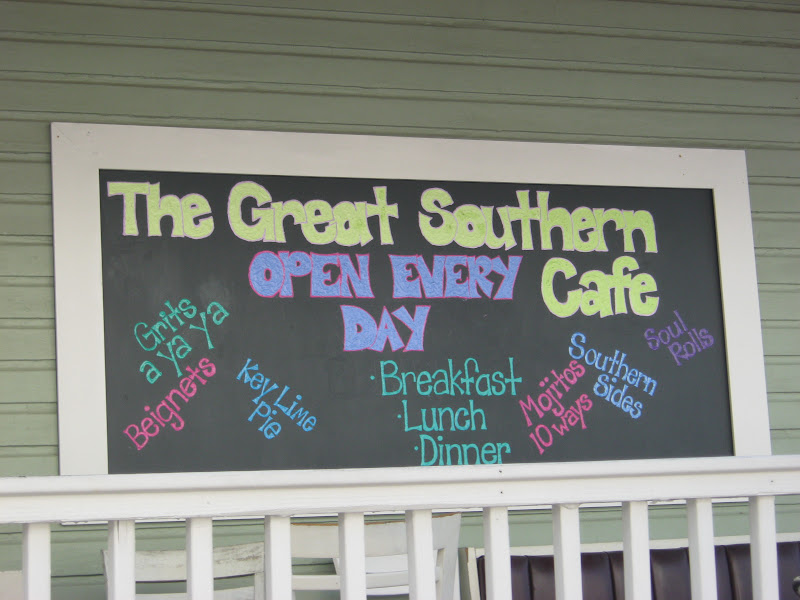 The Great Southern
Cafe
OPEN EVERY
DAY
Grits
a ya ya
Beignets
Key Lime
Pie
·Breakfast
·Lunch
·Dinner
Mojitos
10 ways
Southern
Sides
Soul
Rolls